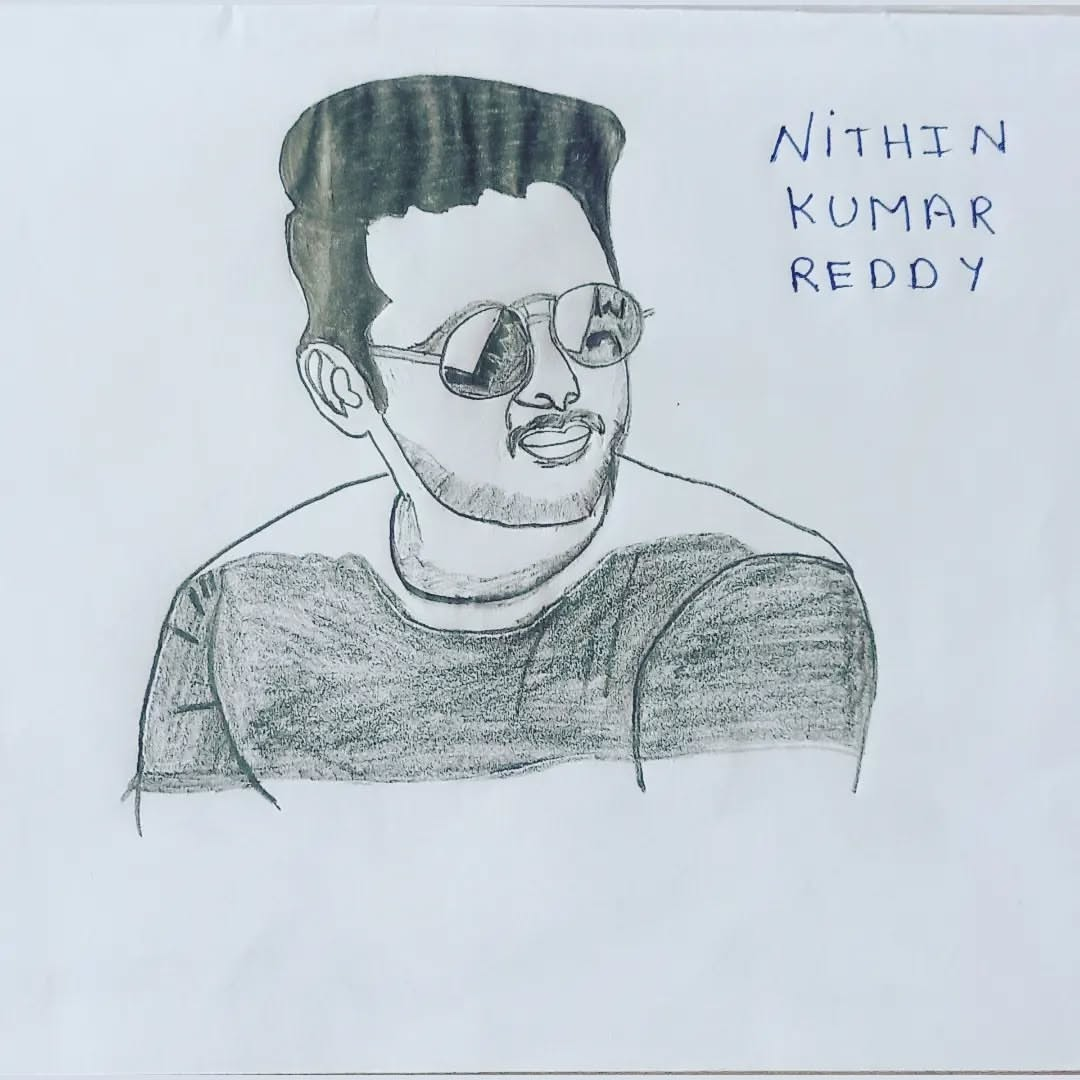 NiTHIN
KUMAR
REDDY